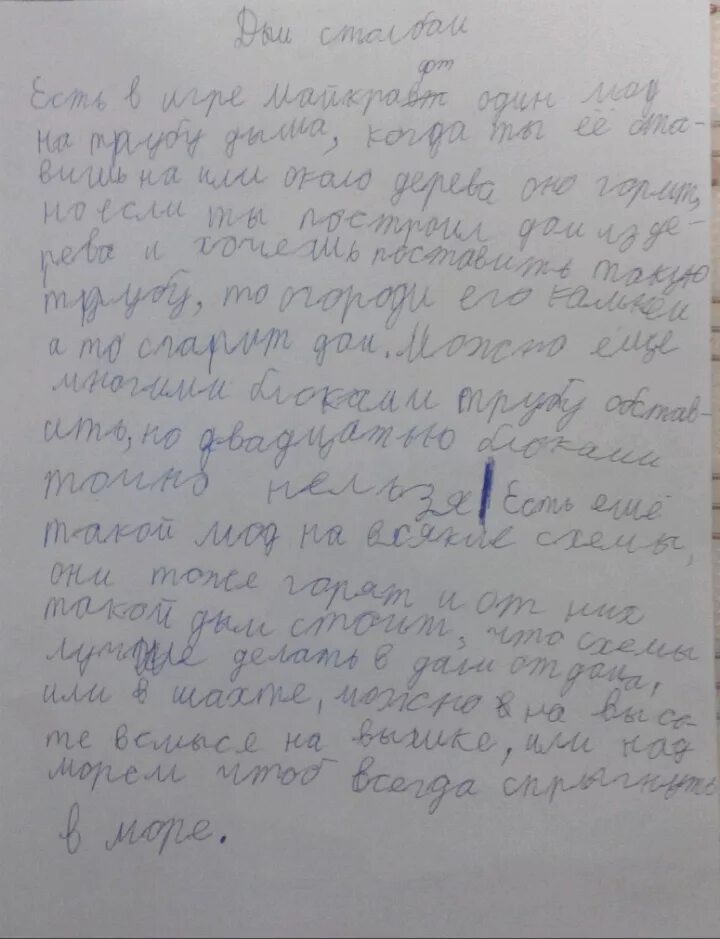 Дым столбом
Есть в игре майкрафт один мод
на трубу дыма, когда ты её ста-
вишь на или около дерева оно горит,
но если ты построил дом из де-
рева и хочешь поставить такую
трубу, то огороди его камнем
а то спарит дом. Можно еще
многими блоками трубу обстав-
ить, но двадцатью блоками
точно нельзя Есть ещё
такой мод на всякие схемы,
они тоже горят и от них
такой дым стоит, что схемы
лучше делать в дали от дома,
или в шахте, можно в на высо-
те в смысе на вышке, или над
морем чтоб всегда спрыгнуть
в море.